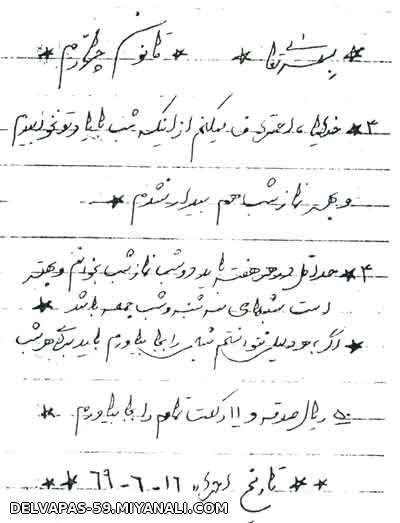 ★ بسمه تعالی ★ قانون چهارم ★
۳★ خدایا، اعتراف میکنم از اینکه شب با یاد تو نخوابیدم
و بهر نماز شب هم بیدار نشدم ★
۴★ حداقل در هر هفته باید دو شب نماز شب خوانم و بهتر
است شبهای سه شنبه و شب جمعه باشد ★
★ اگر به هر دلیلی نتوانستم شبی را بجا بیاورم باید بجای هر شب
۵۰ ریال صدقه و ۱۱ رکعت تمام را بجا بیاورم ★
★★ تاریخ اجراء ۱۶-۶-۶۹ ★★
DELVAPAS-59.MIYANALI.COM